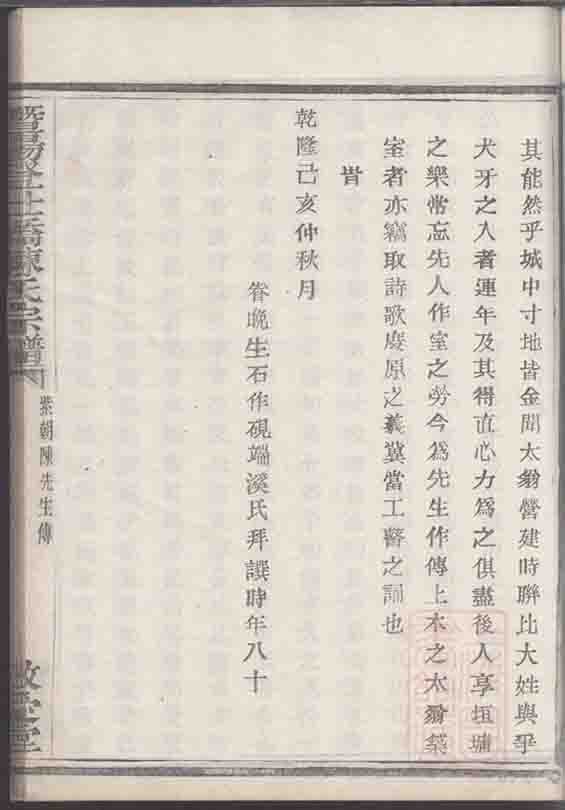 其能然乎城中寸地皆金聞太翁營建時聯比大姓與爭
犬牙之入者連年及其得直心力為之俱盡後人享垣墉
之樂常忘先人作室之勞今為先生作傳上木之太翁築
室者亦竊取詩歌慶原之義冀當工瞽之誦也
旹
乾隆己亥仲秋月
眷晚生石作硯端溪氏拜譔時年八十
暨陽 橋陳氏宗譜
紫朝陳先生傳
堂